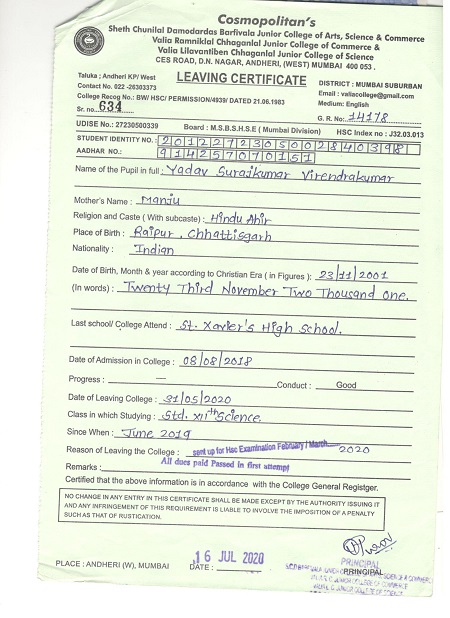 Cosmopolitan's
Sheth Chunilal Damodardas Barfivala Junior College of Arts, Science & Commerce
Valia Ramniklal Chhaganlal Junior College of Commerce &
Valia Lilavantiben Chhaganlal Junior College of Science
CES ROAD, D.N. NAGAR, ANDHERI, (WEST) MUMBAI 400 053.
Taluka : Andheri KP/ West
Contact No. 022 -26303373
LEAVING CERTIFICATE
DISTRICT : MUMBAI SUBURBAN
Email : valiacollege@gmail.com
College Recog No.: BW/ HSC/ PERMISSION/4939/ DATED 21.06.1983
Medium: English
Sr. no. 634
G. R. No.: 14178
UDISE No.: 27230500339
Board : M.S.B.S.H.S.E ( Mumbai Division)
HSC Index no : J32.03.013
STUDENT IDENTITY NO. : 2012272305002840398
AADHAR NO.: 914257070151
Name of the Pupil in full : Yadav Surajkumar Virendrakumar
Mother's Name : Manju
Religion and Caste ( With subcaste) : Hindu Ahir
Place of Birth : Raipur, Chhattisgarh
Nationality : Indian
Date of Birth, Month & year according to Christian Era ( in Figures ): 23/11/2001
(In words) : Twenty Third November Two Thousand One.
Last school/ College Attend : St. Xavier's High School.
Date of Admission in College : 08/08/2018
Progress : — Conduct : Good
Date of Leaving College : 31/05/2020
Class in which Studying : Std. XIIth Science.
Since When : June 2019
Reason of Leaving the College : sent up for Hsc Examination February / March 2020
All dues paid Passed in first attempt
Remarks :
Certified that the above information is in accordance with the College General Registger.
NO CHANGE IN ANY ENTRY IN THIS CERTIFICATE SHALL BE MADE EXCEPT BY THE AUTHORITY ISSUING IT
AND ANY INFRINGEMENT OF THIS REQUIREMENT IS LIABLE TO INVOLVE THE IMPOSITION OF A PENALTY
SUCH AS THAT OF RUSTICATION.
PLACE : ANDHERI (W), MUMBAI
DATE : 16 JUL 2020
PRINCIPAL
PRINCIPAL